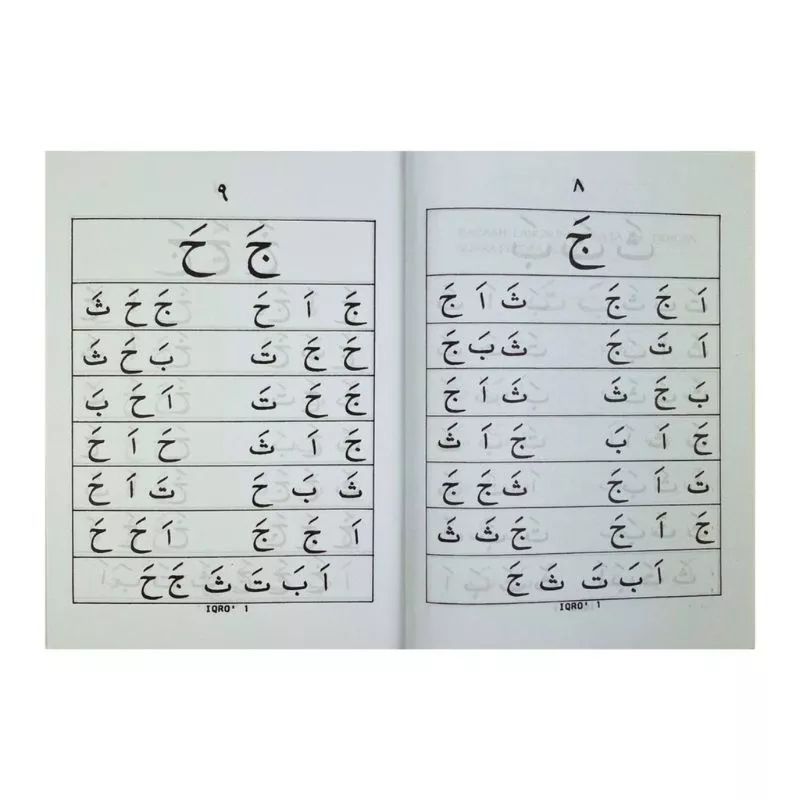 ٨
جَ
اَ جَ جَ ثَ اَ جَ
اَ تَ جَ ثَ بَ جَ
بَ جَ ثَ ثَ اَ جَ
جَ اَ بَ جَ اَ ثَ
تَ اَ جَ ثَ جَ جَ
جَ اَ جَ جَ ثَ ثَ
اَ بَ تَ ثَ جَ
IQRO' 1
٩
جَ حَ
جَ اَ حَ جَ حَ ثَ
حَ جَ تَ بَ حَ ثَ
جَ حَ تَ اَ حَ بَ
جَ اَ ثَ حَ اَ حَ
ثَ بَ حَ تَ اَ حَ
اَ جَ جَ اَ حَ حَ
اَ بَ تَ ثَ جَ حَ
IQRO' 1